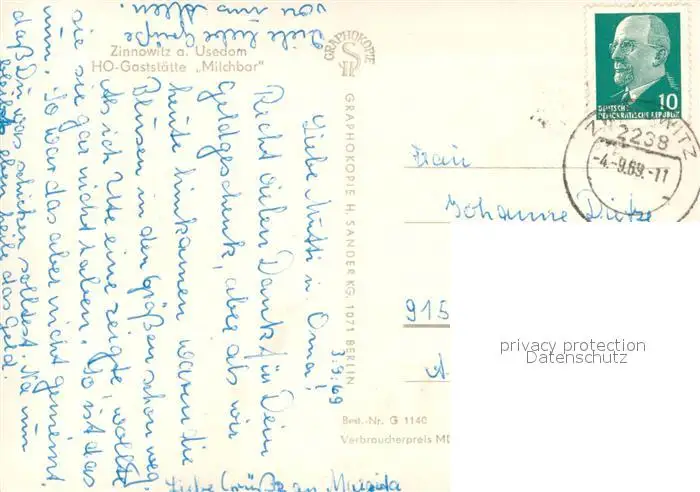 Zinnowitz a. Usedom
HO-Gaststätte „Milchbar"
GRAPHOKOPIE
GRAPHOKOPIE H. SANDER KG. 1071 BERLIN
3.9.69
Liebe Mutti u. Oma!
Recht vielen Dank für Dein
Geldgeschenk, aber als wir
heute hinkamen waren die
Blusen in den Größen schon weg.
Als ich Ute eine zeigte, wollte
sie sie gar nicht haben. So ist das
nun. So war das aber nicht gemeint
daß Du was schicken solltest. Na nun
eben heile das Geld.
Viele liebe Grüße
von uns allen.
Liebe Grüße an
10
DEUTSCHE
DEMOKRATISCHE REPUBLIK
ZINNOWITZ
2238
-4.-9.69.-11
Frau
Johanne
915
Best.-Nr. G 1140
Verbraucherpreis MD
privacy protection
Datenschutz